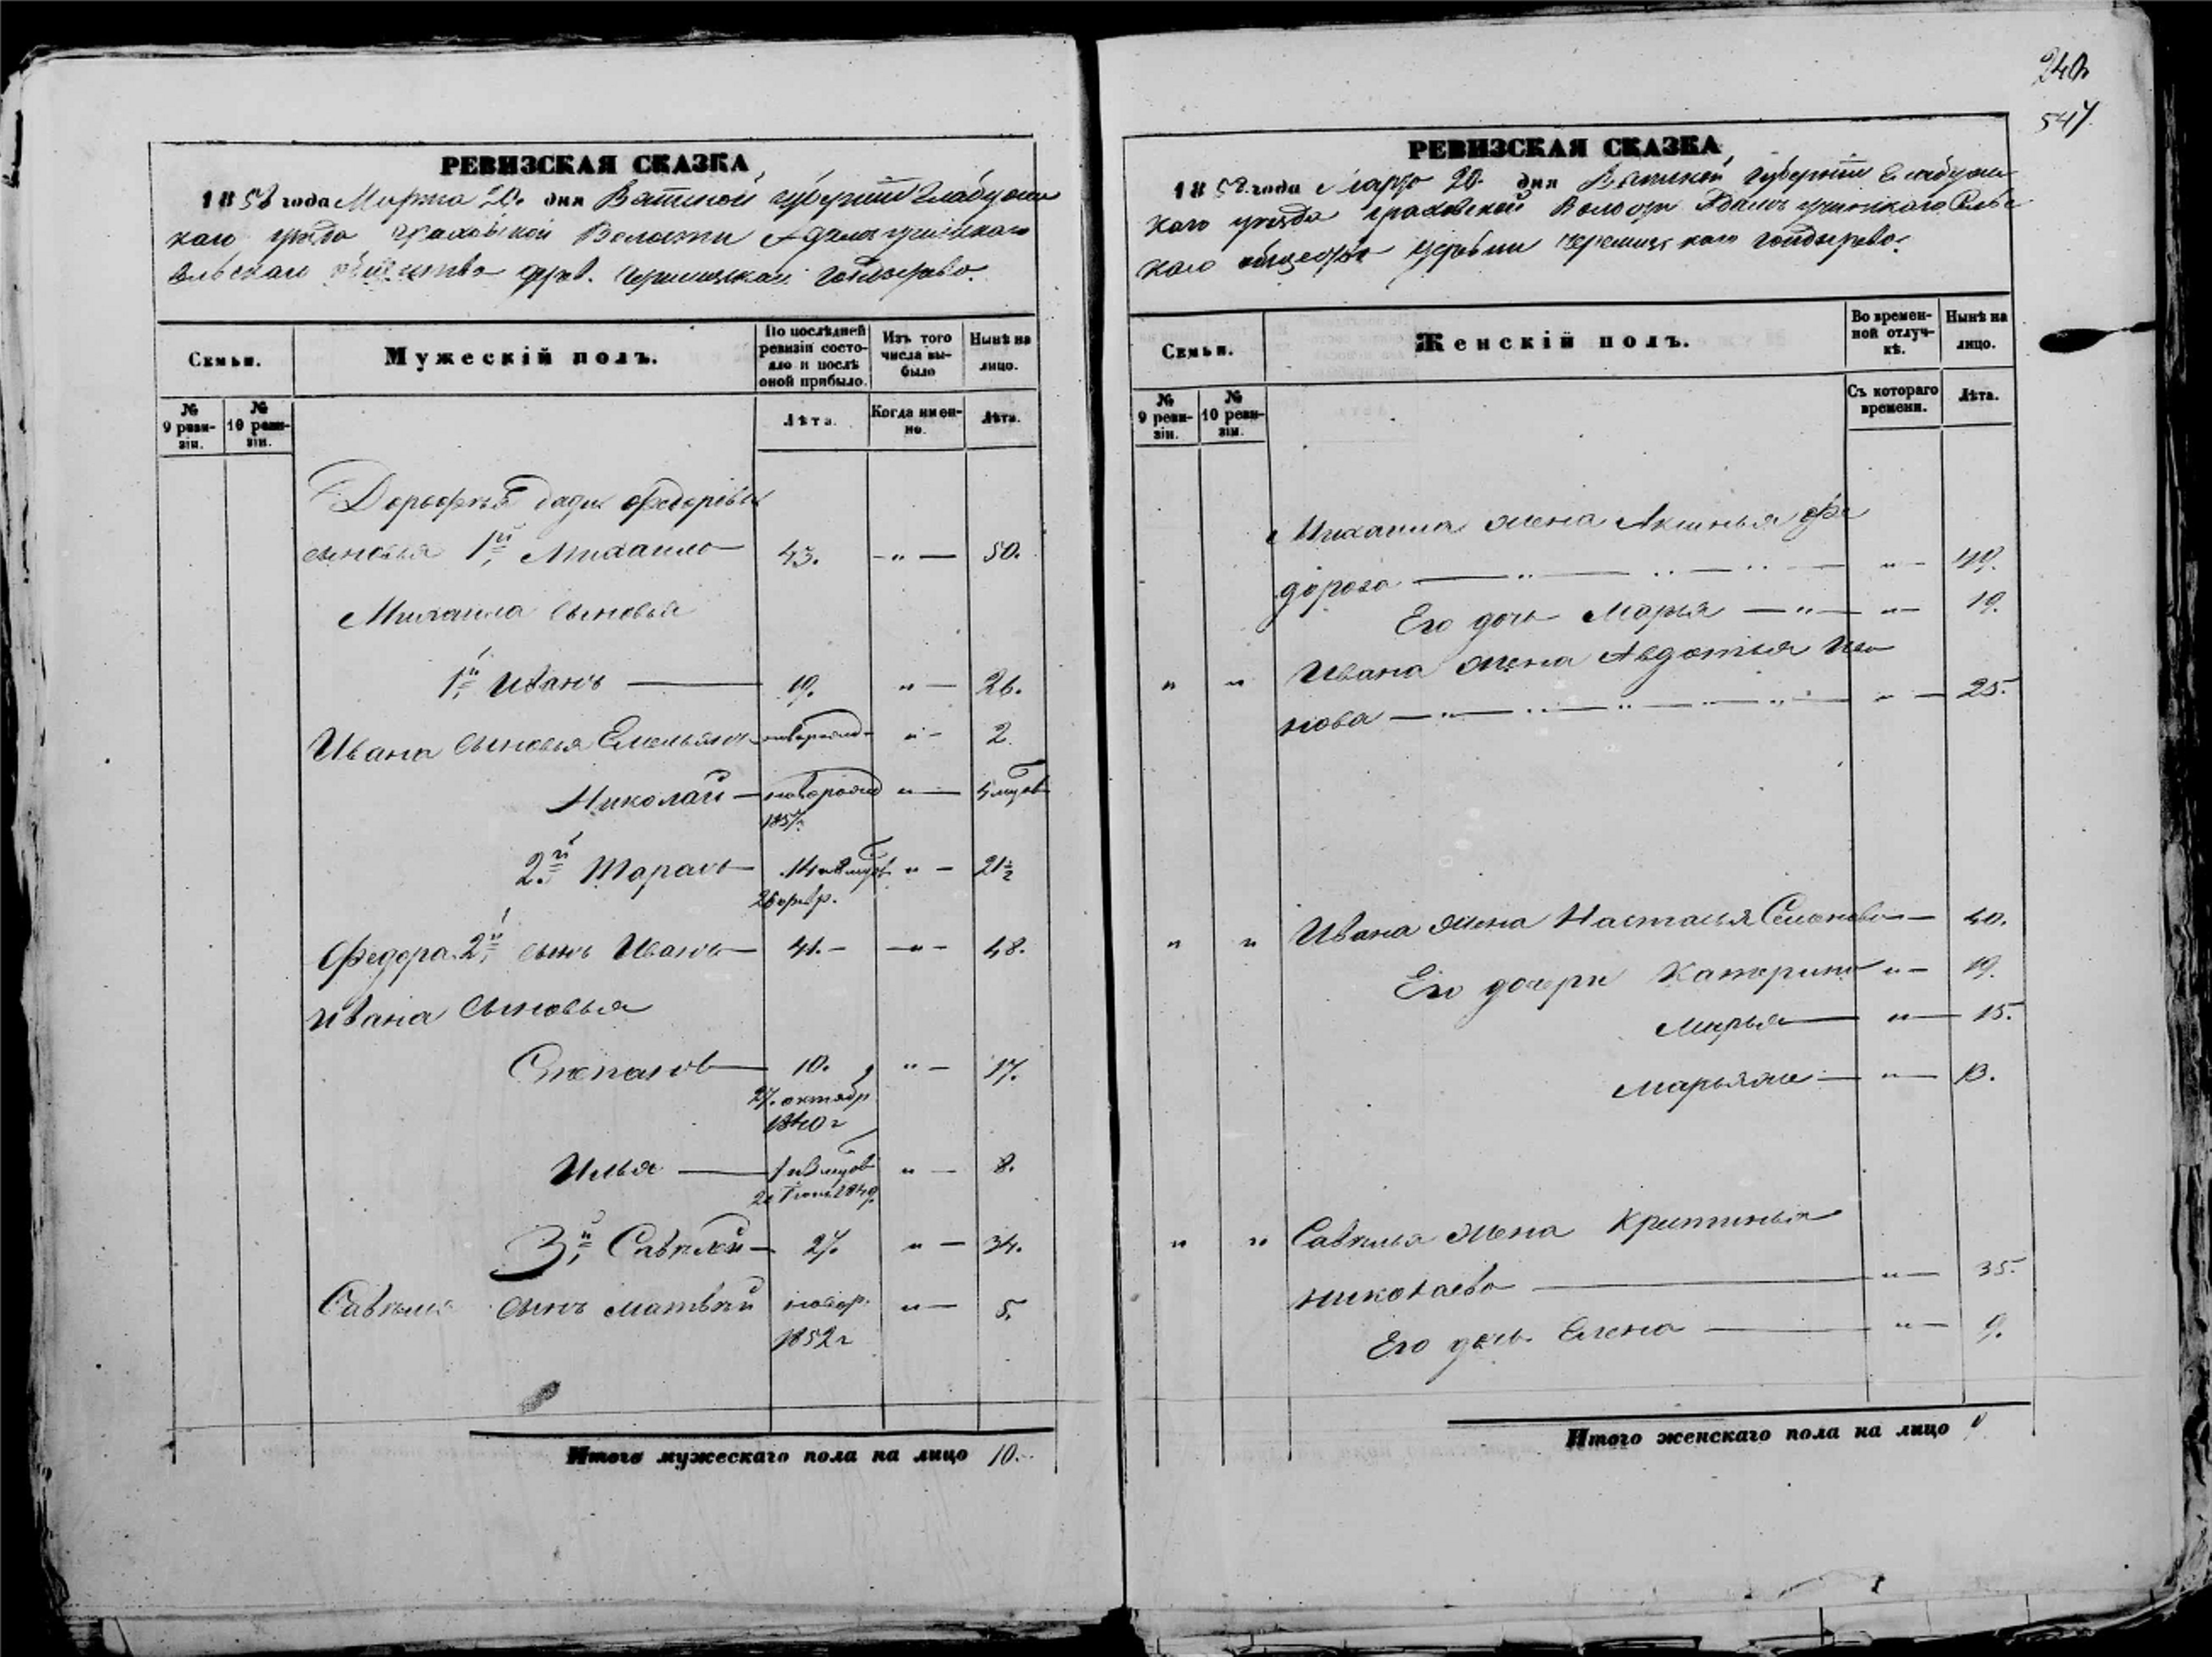 240
547
РЕВИЗСКАЯ СКАЗКА
1858 года Марта 20. дня Вятской губернии Елабужс
каго уезда Граховской Волости
Сельскаго общества дерев.
Семьи.
Мужескій полъ.
По послѣдней ревизіи состояло и послѣ оной прибыло.
Изъ того числа выбыло
Нынѣ на лицо.
№ 9 ревизіи.
№ 10 ревизіи.
Лѣта.
Когда именно.
Лѣта.
Федоровы
сыновья 1й Михаило 43. „ 50.
Михаила сыновья
1й Иванъ 19. „ 26.
Ивана сыновья Емельянъ новорожд „ 2.
Николай новорожд „ 5 мцов
1857
2й Тарасъ „ 21½
Федора 2й сынъ Иванъ 41. „ 48.
Ивана сыновья
Степанъ 10. „ 17.
27. октябр
1840 г
Илья „ 8.
3й Савелей 27. „ 34.
Савелья сынъ Матвей новор. „ 5.
1852 г
Итого мужескаго пола на лицо 10.
РЕВИЗСКАЯ СКАЗКА
1858 года Марта 20. дня Вятской губернии Елабужс
каго уезда Граховской Волости
каго общества деревни Черемисскаго
Семьи.
Женскій полъ.
Во временной отлучкѣ.
Нынѣ на лицо.
№ 9 ревизіи.
№ 10 ревизіи.
Съ котораго времени.
Лѣта.
Михаила жена Аксинья Фе
дорова „ 49.
Его дочь Марья „ 19.
„ „ Ивана жена Авдотья Ива
нова „ 25.
„ „ Ивана жена Настасья Семенова 40.
Его дочери Катерина „ 19.
Марья „ 15.
Марьяна „ 13.
„ „ Савелья жена
Николаева „ 35.
Его дочь Елена „ 9.
Итого женскаго пола на лицо 9